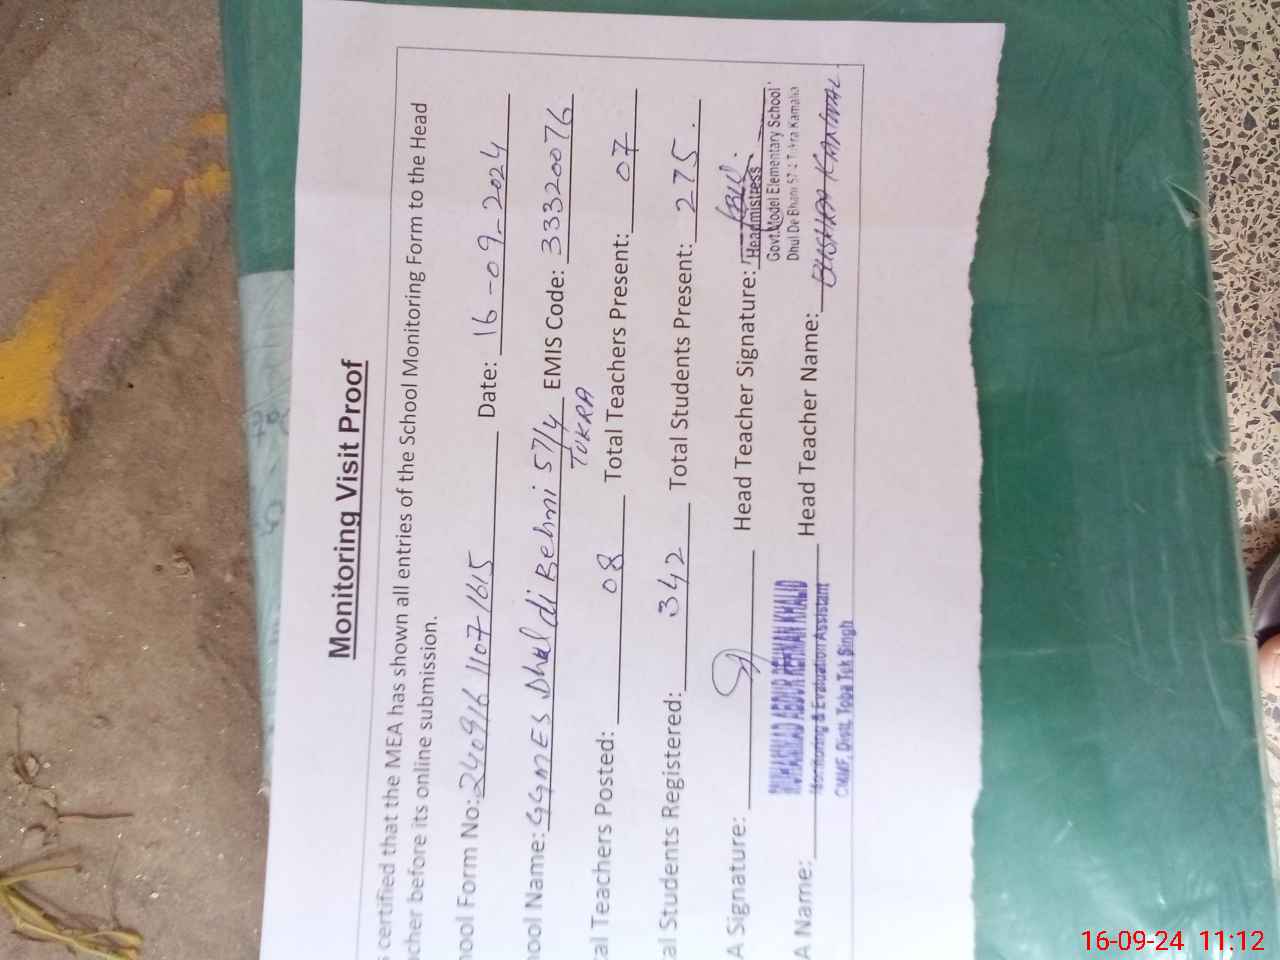 Monitoring Visit Proof
certified that the MEA has shown all entries of the School Monitoring Form to the Head
cher before its online submission.
hool Form No: 240916 1107 1615 Date: 16-09-2024
hool Name: GGMES Dhul di Behni 57/4 TUKRA EMIS Code: 33320076
al Teachers Posted: 08 Total Teachers Present: 07
al Students Registered: 342 Total Students Present: 275.
A Signature: Head Teacher Signature:
Headmistress
Govt.Model Elementary School
Dhul De Bhani 57 Kamalia
MUHAMMAD ABDUR REHMAN KHALID
Monitoring & Evaluation Assistant
CMMF, Distt. Toba Tek Singh
A Name: Head Teacher Name: BUSHRA KANWAL.
16-09-24 11:12